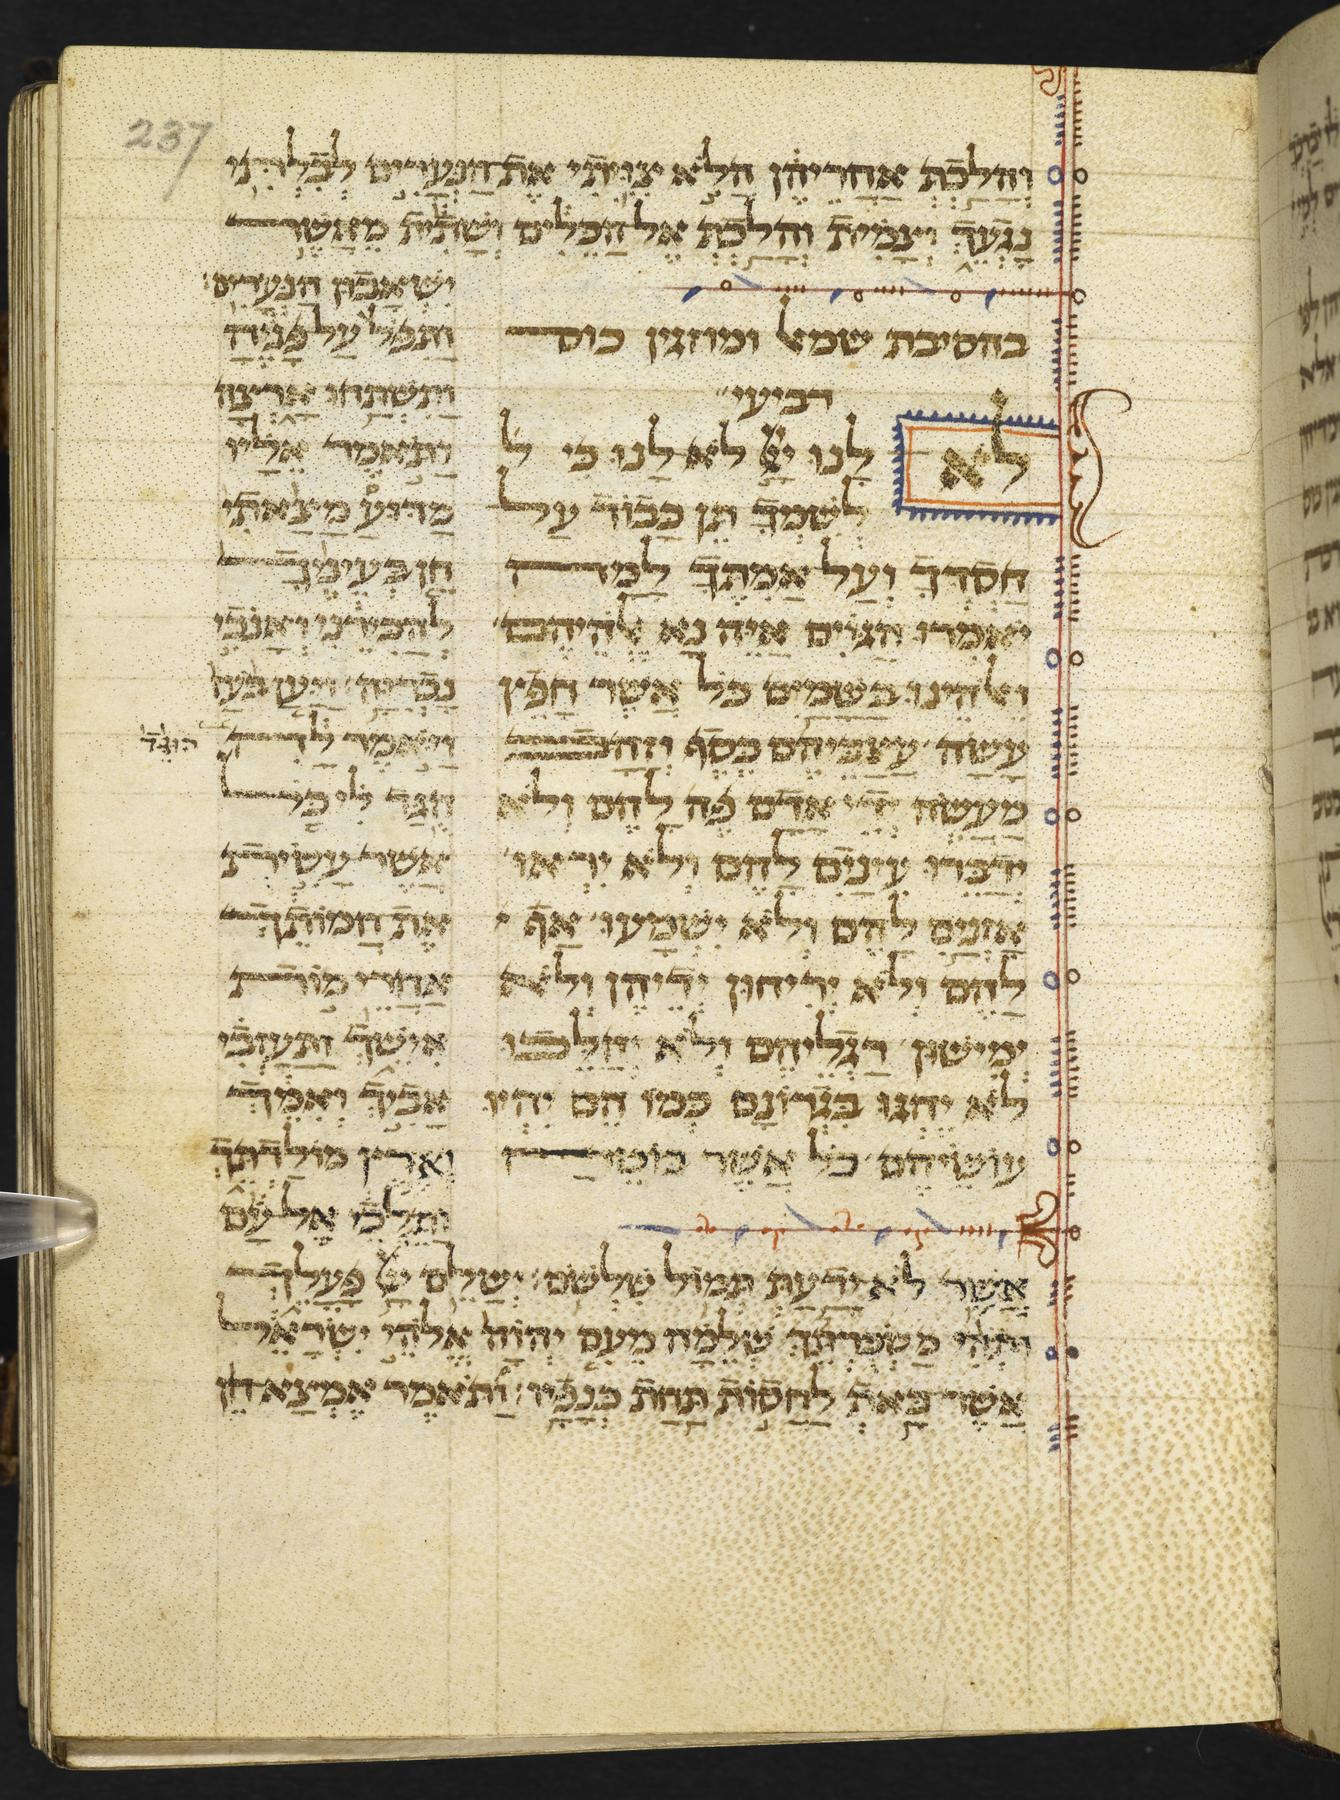 237
והלכת אחריהן הלא צויתי את הנערים לבלתי
נגעך וצמית והלכת אל הכלים ושתית מאשר
בהסיבת שמאל ומוזגין כוס
רביעי
לא
לנו יי לא לנו כי ל
לשמך תן כבוד על
חסדך ועל אמתך למה
יאמרו הגוים איה נא אלהיהם
ואלהינו בשמים כל אשר חפץ
עשה עצביהם כסף וזהב
מעשה ידי אדם פה להם ולא
ידברו עינים להם ולא יראו
אזנים להם ולא ישמעו אף
להם ולא יריחון ידיהן ולא
ימישון רגליהם ולא יהלכו
לא יהגו בגרונם כמו הם יהיו
עושיהם כל אשר בוטח
ישאבון הנערים
ותפל על פניה
ותשתחו ארצה
ותאמר אליו
מדוע מצאתי
חן בעיניך
להכירני ואנכי
נכריה ויען בעז
ויאמר לה
הוגד
הגד לי כל
אשר עשית
את חמותך
אחרי מות
אישך ותעזבי
אביך ואמך
וארץ מולדתך
ותלכי אל עם
אשר לא ידעת תמול שלשם ישלם יי פעלך
ותהי משכרתך שלמה מעם יהוה אלהי ישראל
אשר באת לחסות תחת כנפיו ותאמר אמצא חן